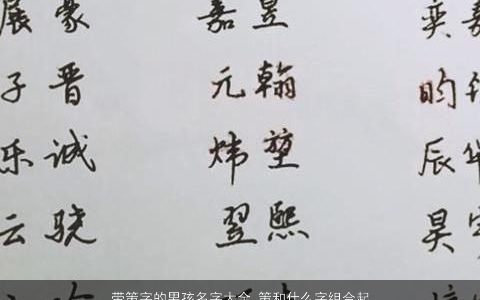 展豪 嘉昱 奕
子晋 元翰 昀
乐诚 炜堃 辰华
云骁 翌熙 昊宇
带策字的男孩名字大全 策和什么字组合起